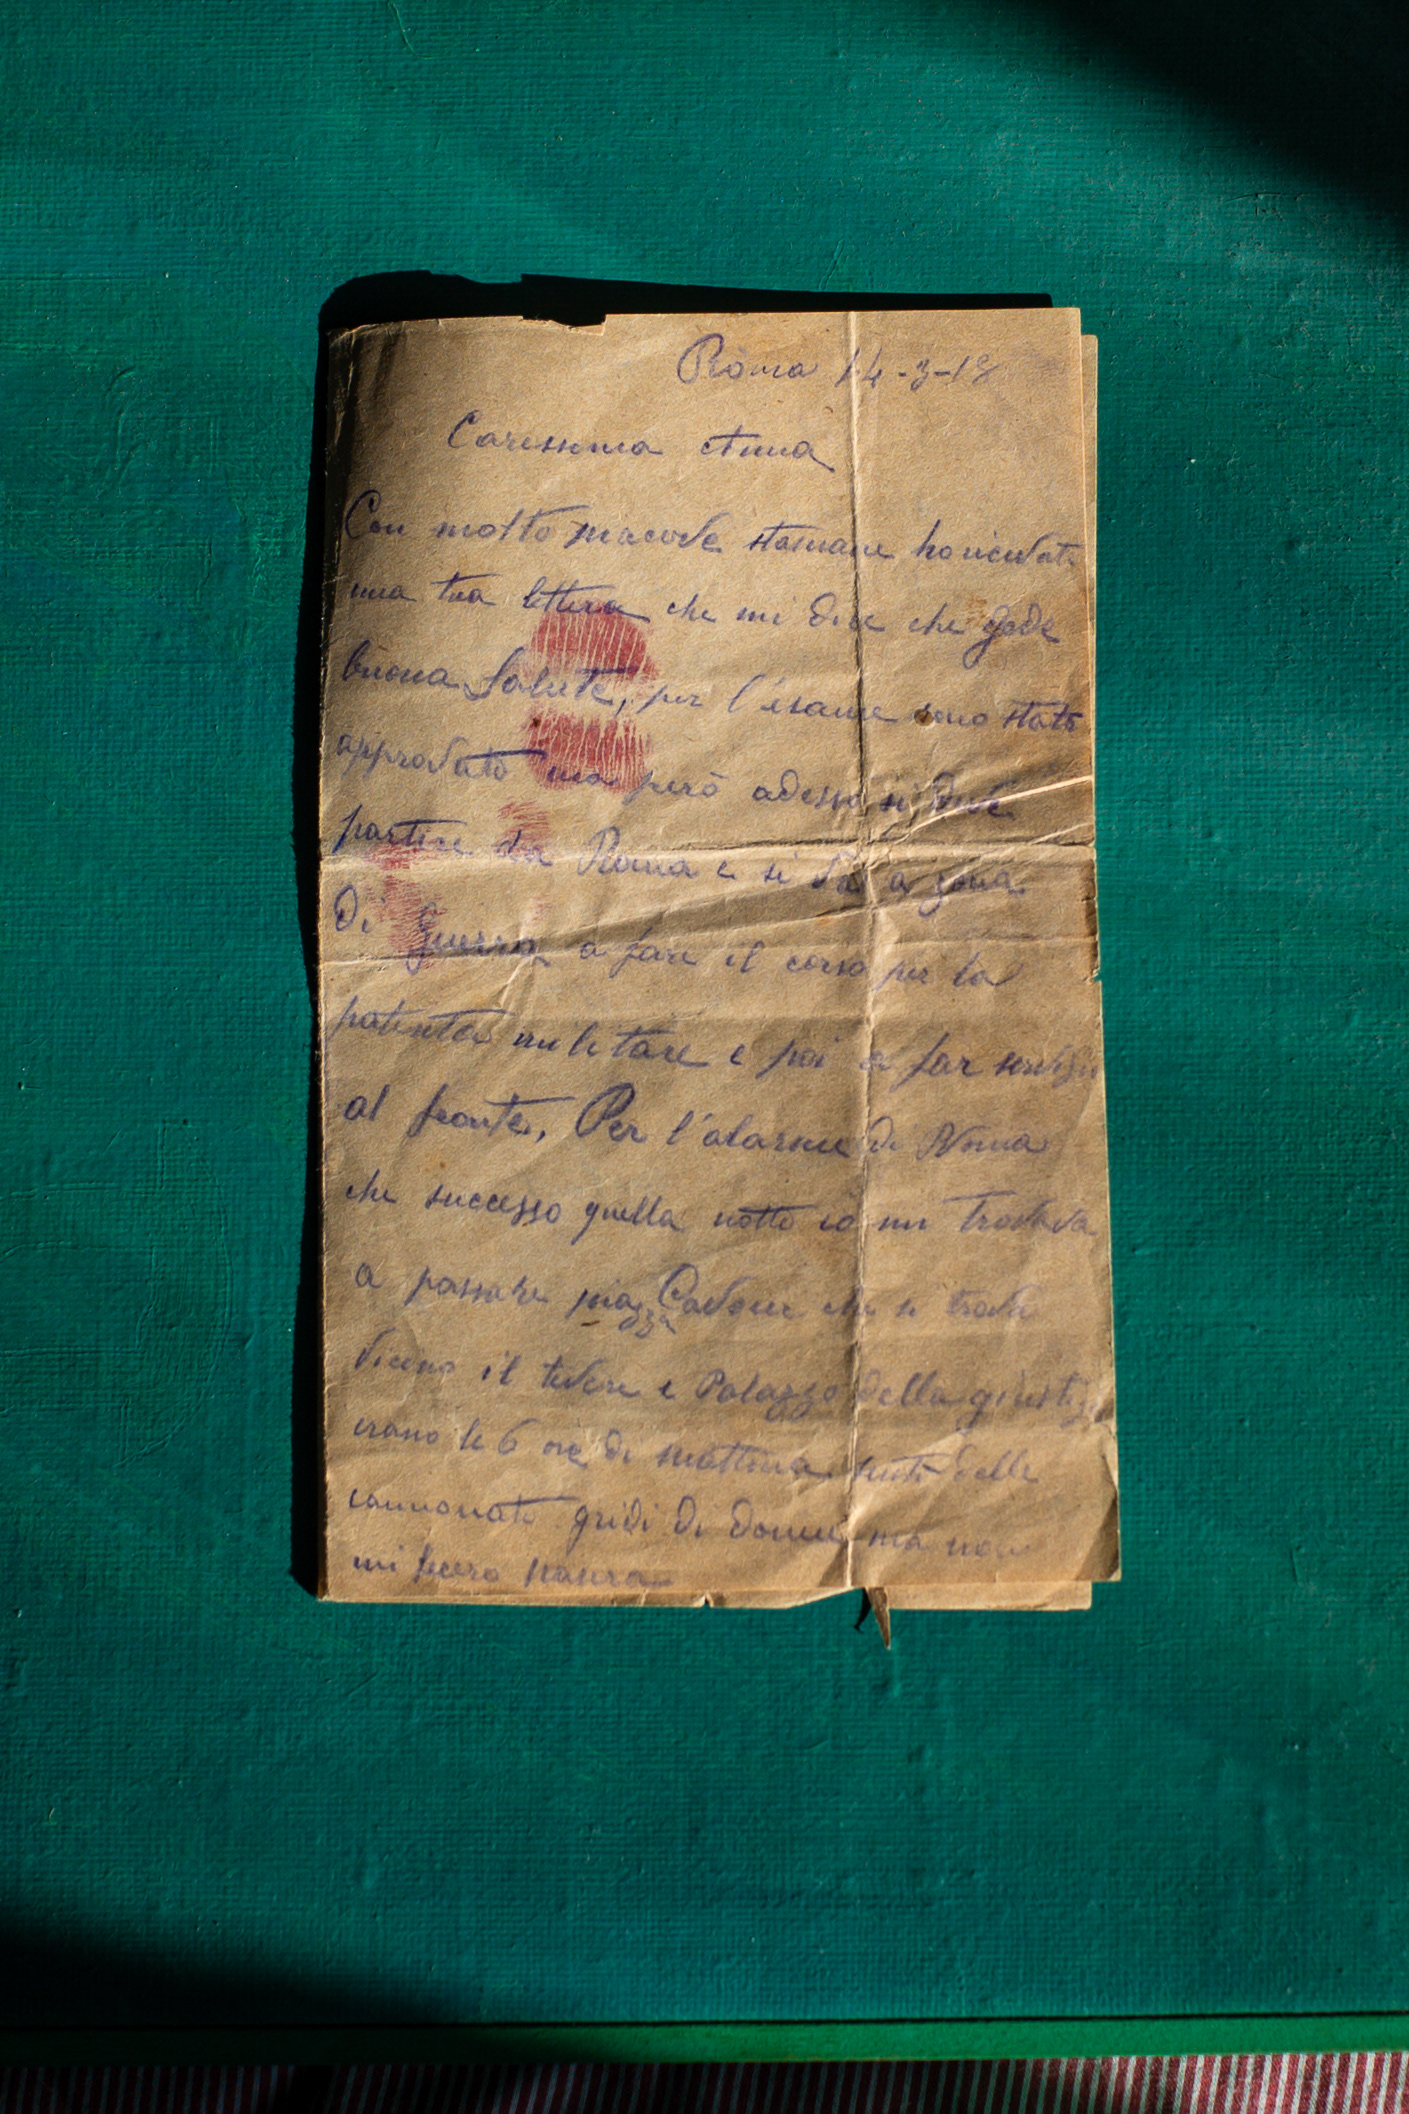 Roma 14-3-18
Carissima Anna
Con molto piacere stamane ho ricevuto
una tua lettera che mi dice che gode
buona Salute, per l'esame sono stato
approvato ma però adesso si deve
partire da Roma e si va a zona
di guerra a fare il corso per la
patente militare e poi a far servizio
al fronte. Per l'alarme di Roma
che successo quella notte io mi trovava
a passare piazza Cavour che si trova
vicino il tevere e Palazzo della giustizia
erano le 6 ore di mattina sentii delle
cannonate gridi di donne ma non
mi fecero paura